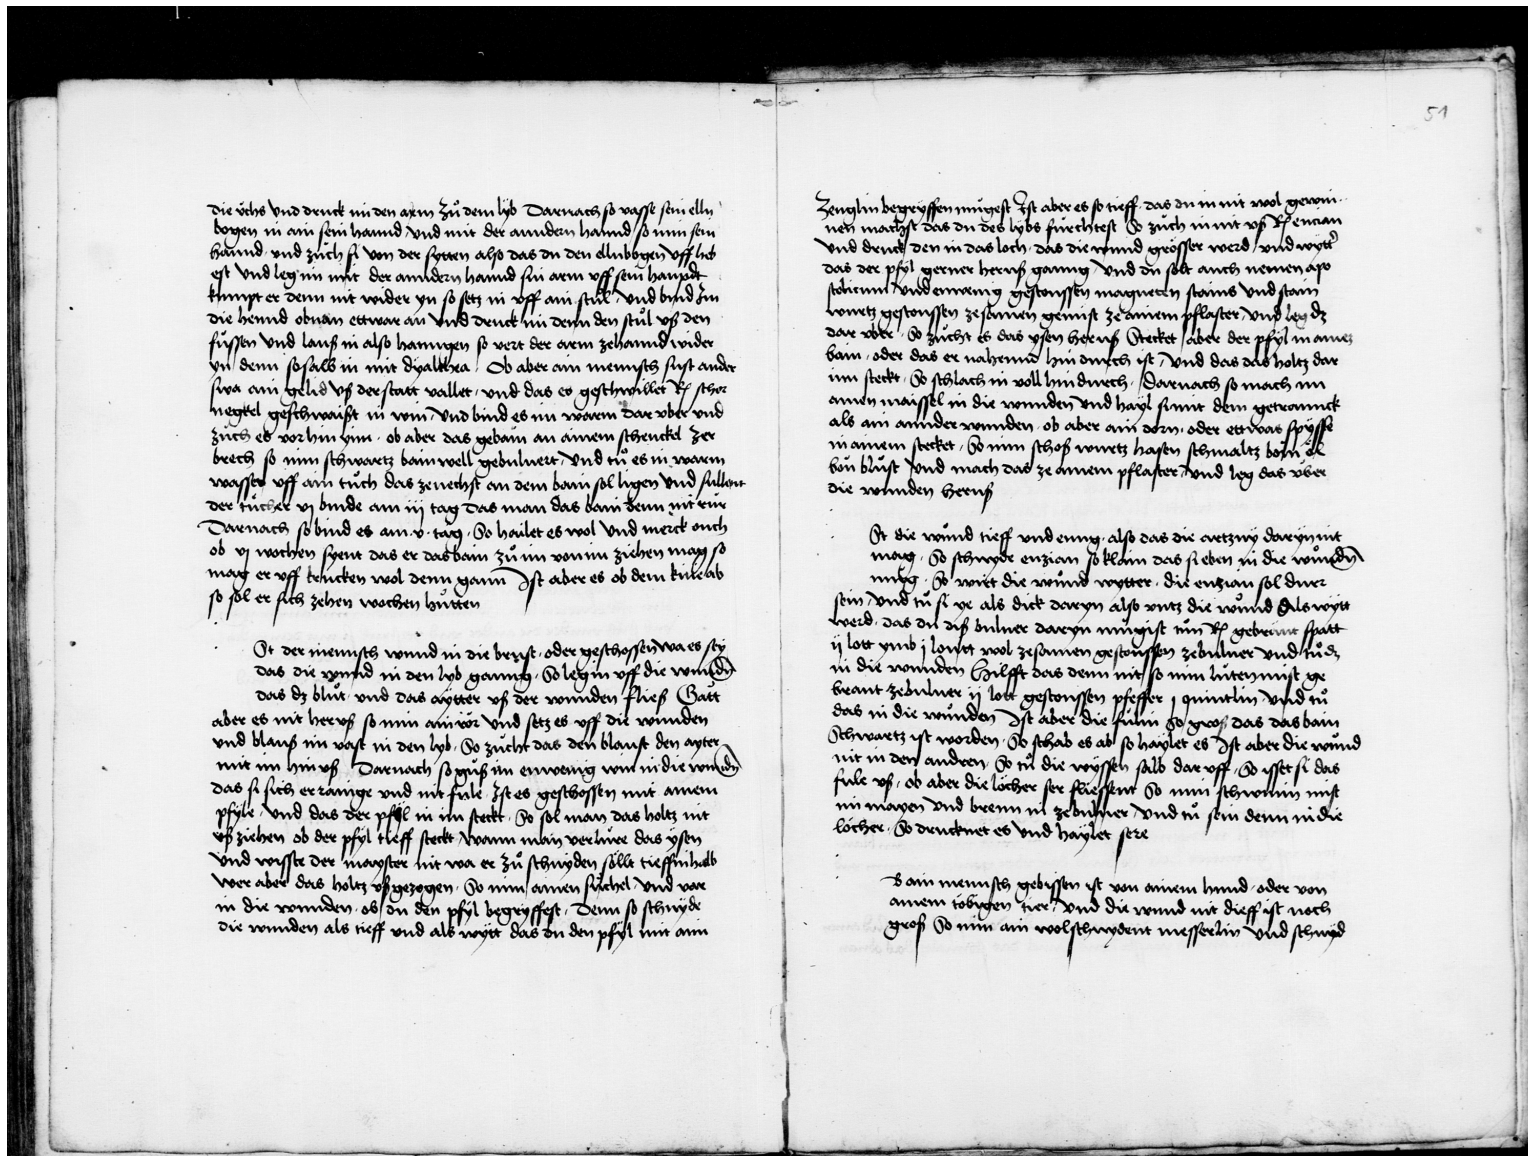 die v̊chs vnd druck im den arm zů dem lyb Darnach so vasse sein elln
bogen in ain sein hannd vnd mit der anndern hannd so nim sein
hannd vnd züch si von der sytten also das du den ellnbogen vff heb
est vnd leg im mit der anndern hannd sin arm vff sein haupt
kumpt er denn nit wider yn so setz in vff ain stůl vnd bind Im
die hennd obnan ettwar an vnd druck im denn den stůl vß den
füssen vnd lauß in also hanngen so vert der arm zehannd wider
yn denn so salb in mit dyalthea Ob aber ain mennsch sust ander
swa ain gelid vß der statt vallet vnd das es geschwillet Rx scher
negkel geschwaißt in win vnd bind es im warm dar vber vnd
züch es vor hin yin ob aber das gebain an ainem schenckel zer
brech so nim schwartz bainwell gebuluert vnd tů es in warm
wasser vff ain tůch das zenechst an dem bain sol ligen vnd sullent
der tücher vj binde am iij tag das man das bain denn nit rür
Darnach so bind es am v tag So hailet es wol vnd merck ouch
ob vj wochen syent das er das bain zů im von im ziehen mag so
mag er vff krucken wol denn gann Ist aber es ob dem knie ab
so sol er sich zehen wochen hütten
St der mennsch wund in die brust oder geschossen wa es sey
das die wund in den lyb ganng So leg in vff die wunden
das dz blůt vnd das aytter vß der wunden fließ Gatt
aber es nit heruß so nim ain rör vnd setz es vff die wunden
vnd blauß im vast in den lyb So zücht das den blaust den ayter
mit im hin vß Darnach so güß im enwenig win in die wunden
das si sich erraинge vnd nit fule Ist es geschossen mit ainem
pfyle vnd das der pfyl in im steckt So sol man das holtz nit
vß ziehen ob der pfyl tieff steckt wann man verlüre das ysen
vnd wisste der mayster nit wa er zů schnyden söllt tieffin halb
wer aber das holtz vß gezogen So nim ainen süchel vnd var
in die wunden ob du den pfyl begryffest Denn so schnyde
die wunden als tieff vnd als wytt das du den pfyl mit aim
51
Zenglin begryffen mügest Ist aber es so tieff das du in nit wol gewin
nen machst das du des lybs fürchtest So züch in nit vß Rx encian
vnd druck den in das loch das die wund grösser werd vnd wytter
das der pfyl gerner heruß ganng vnd du solt auch nemen apo
stolicum vnd enwenig gestoussen magneten stains vnd stain
wurtz gestoussen zesamen gemist ze ainem pflaster vnd leg dz
dar vber So zücht es das ysen heruß Stecket aber der pfyl in ainem
bain oder das er nahennd hin durch ist vnd das das holtz dar
inn steckt So schlach in voll hindurch Darnach so mach im
ainen maissel in die wunden vnd hayl si mit dem getrannck
als ain annder wunden ob aber ain dorn oder ettwas spysse
in ainem stecket So nim schoß wurtz hasen schmaltz bom öl
bon blůst vnd mach das ze ainem pflaster vnd leg das vber
die wunden heruß
St die wund tieff vnd enng also das die artzny daryn nit
mag So schnyde enzian so klain das si eben in die wunden
müg So wirt die wund wytter die enzian sol durr
sein vnd tů si ye als dick daryn also vntz die wund als wytt
werd das du diß buluer daryn mügist tůn Rx gebrant spatt
ij lott ymb j loutt wol zesamen gestoussen zebuluer vnd tů dz
in die wunden Hilfft das denn nit so nim luten mist ge
brant zebuluer ij lott gestoussen pfeffer j quintlin vnd tů
das in die wunden Ist aber die fulin so groß das das bain
Schwartz ist worden So schab es ab so haylet es Ist aber die wund
nit in den andren So tů die wyssen salb dar vff So isset si das
fule vß ob aber die löcher ser fliessent So nim schwinin mist
im mayen vnd brenn in zebuluer vnd tů sein denn in die
löcher So drucknet es vnd haylet sere
B ain mennsch gebissen ist von ainem hund oder von
ainem töbigen tier vnd die wund nit dieff ist noch
groß So nim ain wolschnydent messerlin vnd schnyd